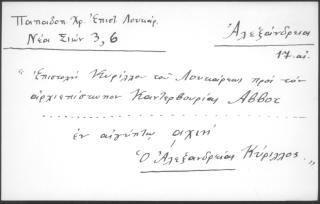 Παπαδοπ. Χρ. Ἐπισ. Λουκάρ.
Νέα Σιών 3, 6
Ἀλεξάνδρεια
17 αἰ.
"Ἐπιστολὴ Κυρίλλου τοῦ Λουκάρεως πρὸς τὸν
ἀρχιεπίσκοπον Καντερβουρίας Αββοτ
ἐν αἰγύπτῳ αχιη
Ὁ Ἀλεξανδρείας Κύριλλος."